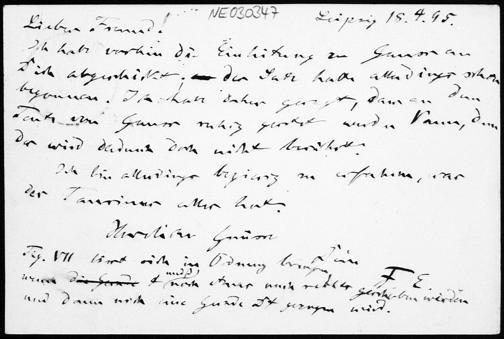 NE030347
Leipzig 18.4.95.
Lieber Freund!
Ich habe vorhin die Einleitung zu Gauss an
Dich abgeschickt. der Satz hatte allerdings schon
begonnen. Ich habe daher gesagt, dass an dem
Texte von Gauss ruhig gesetzt werden kann, denn
der wird dadurch doch nicht berührt.
Ich bin allerdings begierig zu erfahren, was
der Taurinus alles hat.
Herzliche Grüsse
Dein
F E.
Fig. VII lässt sich in Ordnung bringen
wenn t muß noch etwas nach rechts geschoben werden
und dann noch eine Gerade gezogen wird.